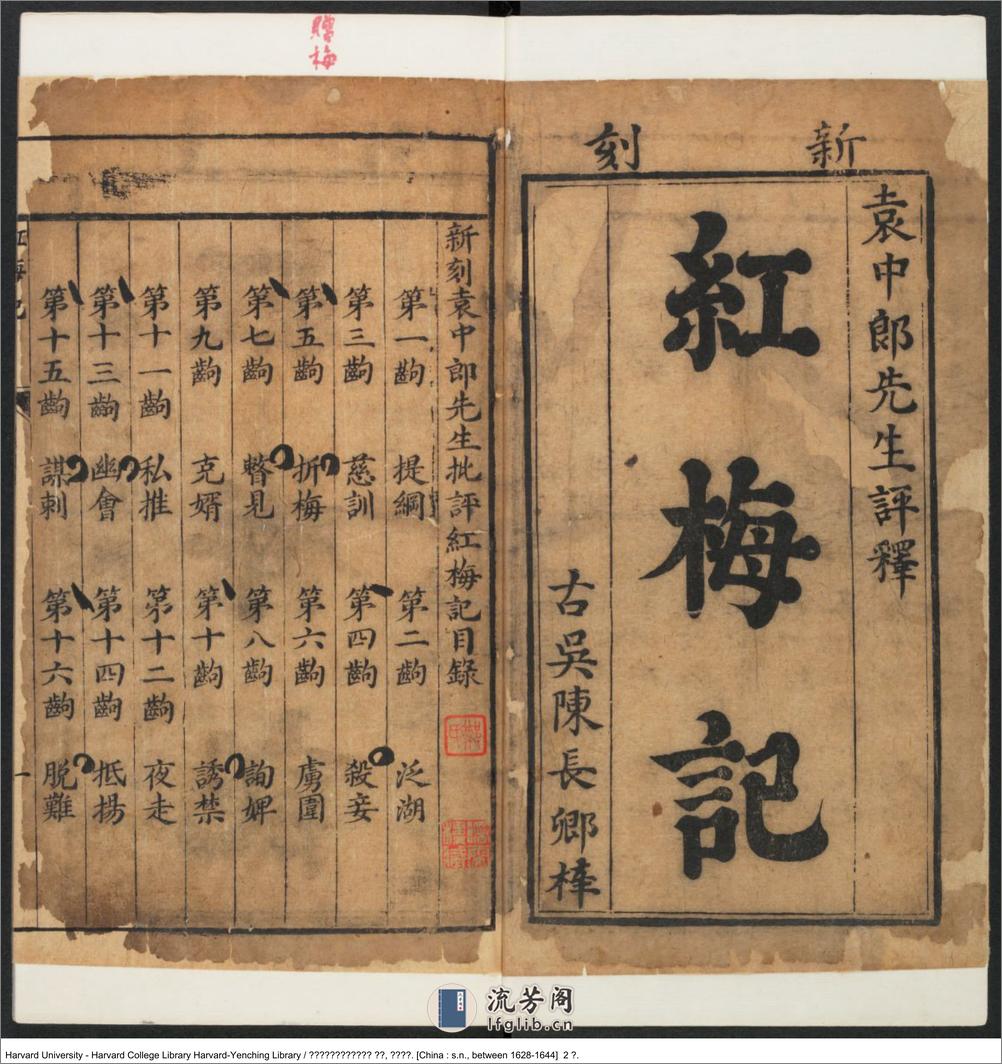 贈梅
新刻
袁中郎先生評釋
紅梅記
古吳陳長卿梓
新刻袁中郎先生批評紅梅記目錄
第一齣 提綱 第二齣 泛湖
第三齣 慈訓 第四齣 殺妾
第五齣 折梅 第六齣 虜圍
第七齣 瞥見 第八齣 詢婢
第九齣 克婿 第十齣 誘禁
第十一齣 私推 第十二齣 夜走
第十三齣 幽會 第十四齣 抵揚
第十五齣 謀刺 第十六齣 脫難
紅梅記
一
流芳阁
lfglib.cn
Harvard University - Harvard College Library Harvard-Yenching Library / ???????????? ??, ????. [China : s.n., between 1628-1644] 2 ?.